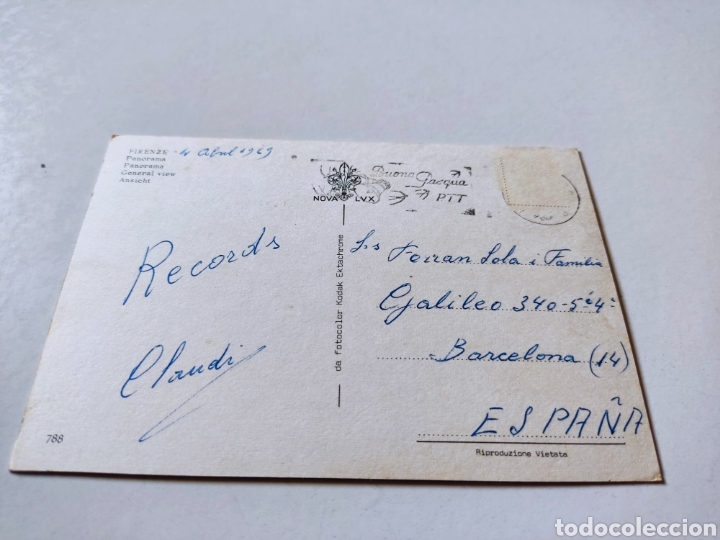 FIRENZE - 4 Abril 1969
Panorama
Panorama
General view
Ansicht
Buona Pasqua
PTT
NOVA LVX
Records
Claudi
da fotocolor Kodak Ektachrome
Srs Ferran Sola i Familia
Galileo 340-5º4ª
Barcelona (14)
ESPAÑA
788
Riproduzione Vietata
todocoleccion